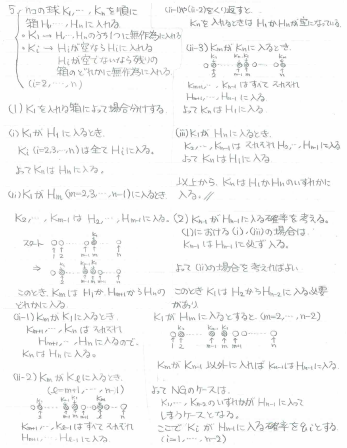 5 n コの球 K₁, …, Kₙ を順に
箱 H₁, …, Hₙ に入れる。
・K₁ → H₁, …, Hₙ のうち1つに無作為に入れる
・Kᵢ → Hᵢ が空なら Hᵢ に入れる
Hᵢ が空でないなら残りの
箱のどれかに無作為に入れる。
(i=2, …, n)
(1) K₁ を入れる箱によって場合分けする。
(i) K₁ が H₁ に入るとき
Kᵢ (i=2,3,…,n) は全て Hᵢ に入る。
よって Kₙ は Hₙ に入る。
(ii) K₁ が Hₘ (m=2,3,…,n-1) に入るとき
K₂, …, Kₘ₋₁ は H₂, …, Hₘ₋₁ に入る。
スタート
1 2 m-1 m n
⇒
1 2 m-1 m m+1 n
このとき、Kₘ は H₁ か Hₘ₊₁ から Hₙ の
どれかに入る。
(ii-1) Kₘ が H₁ に入るとき
Kₘ₊₁, …, Kₙ はそれぞれ
Hₘ₊₁, …, Hₙ に入るので、
Kₙ は Hₙ に入る。
(ii-2) Kₘ が Kℓ に入るとき
(ℓ=m+1, …, n-1)
Kₘ₊₁, …, Kℓ₋₁ はそれぞれ
Hₘ₊₁, …, Hℓ₋₁ に入る。
(ii-1) か (ii-2) をくり返すと、
Kₙ を入れるときは H₁ か Hₙ が空になっている。
(ii-3) Kₘ が Kₙ に入るとき、
Kₘ₊₁, …, Kₙ₋₁ はすべて それぞれ
Hₘ₊₁, …, Hₙ₋₁ に入る。
よって Kₙ は H₁ に入る。
(iii) K₁ が Hₙ に入るとき
K₂, …, Kₙ₋₁ は それぞれ H₂, …, Hₙ₋₁ に入る
よって Kₙ は H₁ に入る。
以上から、Kₙ は H₁ か Hₙ のいずれかに
入る。//
(2) Kₙ₋₁ が Hₙ₋₁ に入る確率を考える。
(1) における (i), (iii) の場合は、
Kₙ₋₁ は Hₙ₋₁ に必ず入る。
よって (ii) の場合を考えればよい
このとき K₁ は H₂ から Hₙ₋₂ に入る必要
があり、
K₁ が Hₘ に入るとすると、(m=2, …, n-2)
Kₘ が Kₙ₋₁ 以外に入れば Kₙ₋₁ は Hₙ₋₁ に入る。
よって NG のケースは、
K₁, …, Kₙ₋₂ のいずれかが Hₙ₋₁ に入って
しまうケースとなる。
ここで Kᵢ が Hₙ₋₁ に入る確率を qᵢ とする
(i=1, …, n-2)